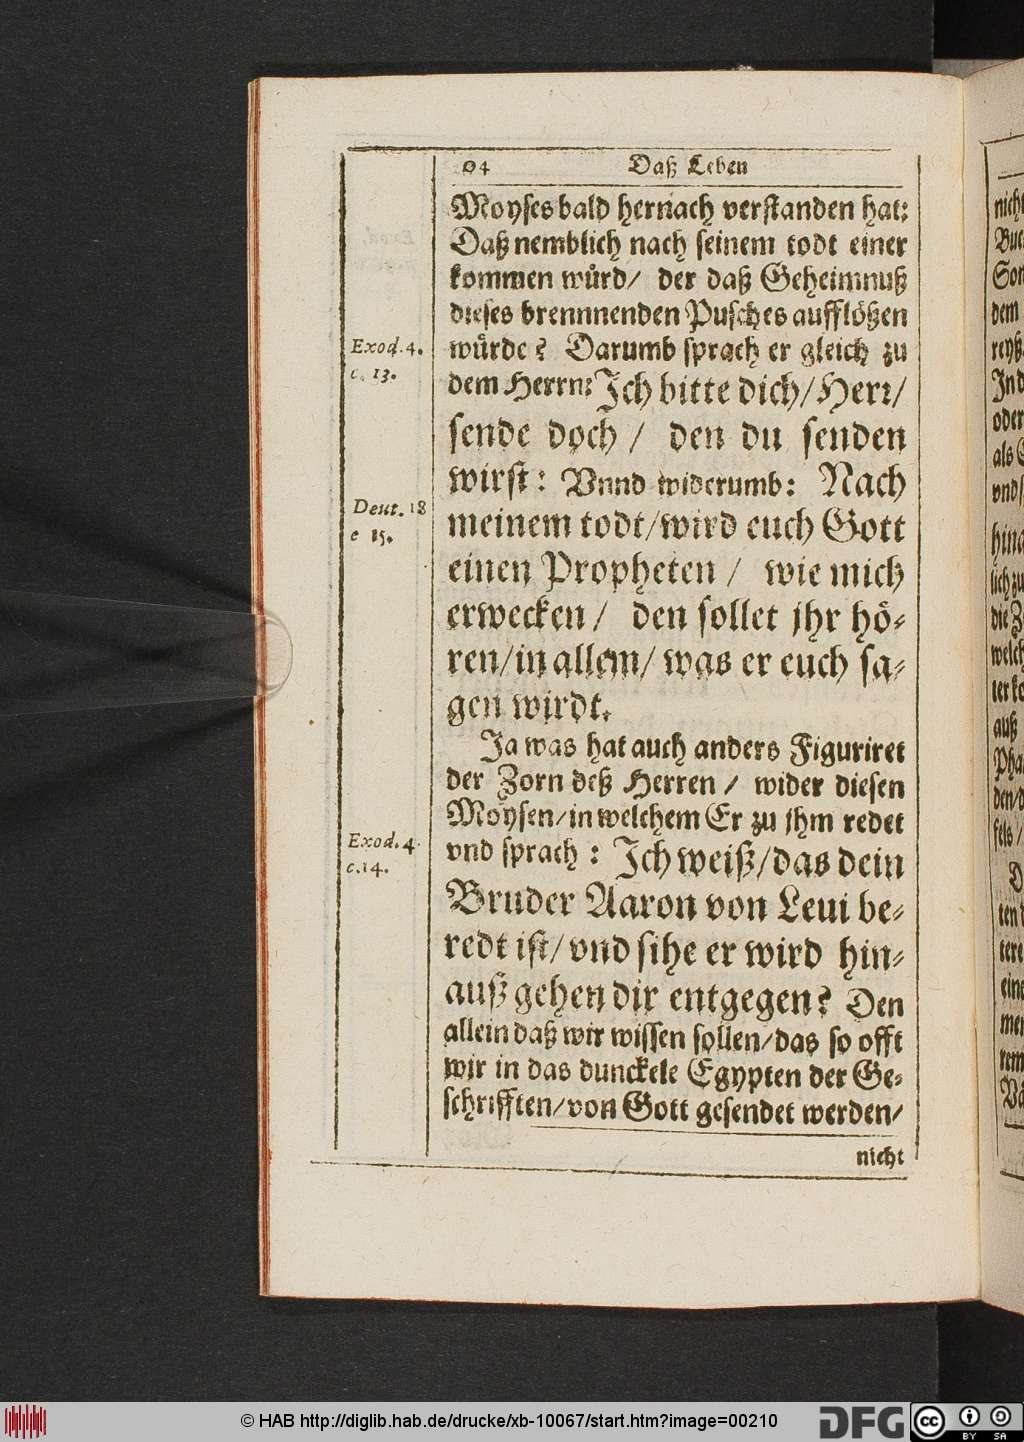 04 Daß Leben
Moyses bald hernach verstanden hat:
Daß nemblich nach seinem todt einer
kommen wůrd/ der daß Geheimnuß
dieses brennnenden Pusches aufflößen
wůrde? Darumb sprach er gleich zu
dem Herrn: Ich bitte dich/ Herr/
sende doch/ den du senden
wirst: Vnnd widerumb: Nach
meinem todt/ wird euch Gott
einen Propheten/ wie mich
erwecken/ den sollet jhr hö-
ren/ in allem/ was er euch sa-
gen wirdt.
Ja was hat auch anders Figuriret
der Zorn deß Herren/ wider diesen
Moysen/ in welchem Er zu jhm redet
vnd sprach: Ich weiß/ das dein
Bruder Aaron von Leui be-
redt ist/ vnd sihe er wird hin-
auß gehen dir entgegen? Den
allein daß wir wissen sollen/ das so offt
wir in das dunckele Egypten der Ge-
schrifften/ von Gott gesendet werden/
nicht
Exod. 4.
c. 13.
Deut. 18
c 15.
Exod. 4
c. 14.
© HAB http://diglib.hab.de/drucke/xb-10067/start.htm?image=00210
DFG
cc BY SA